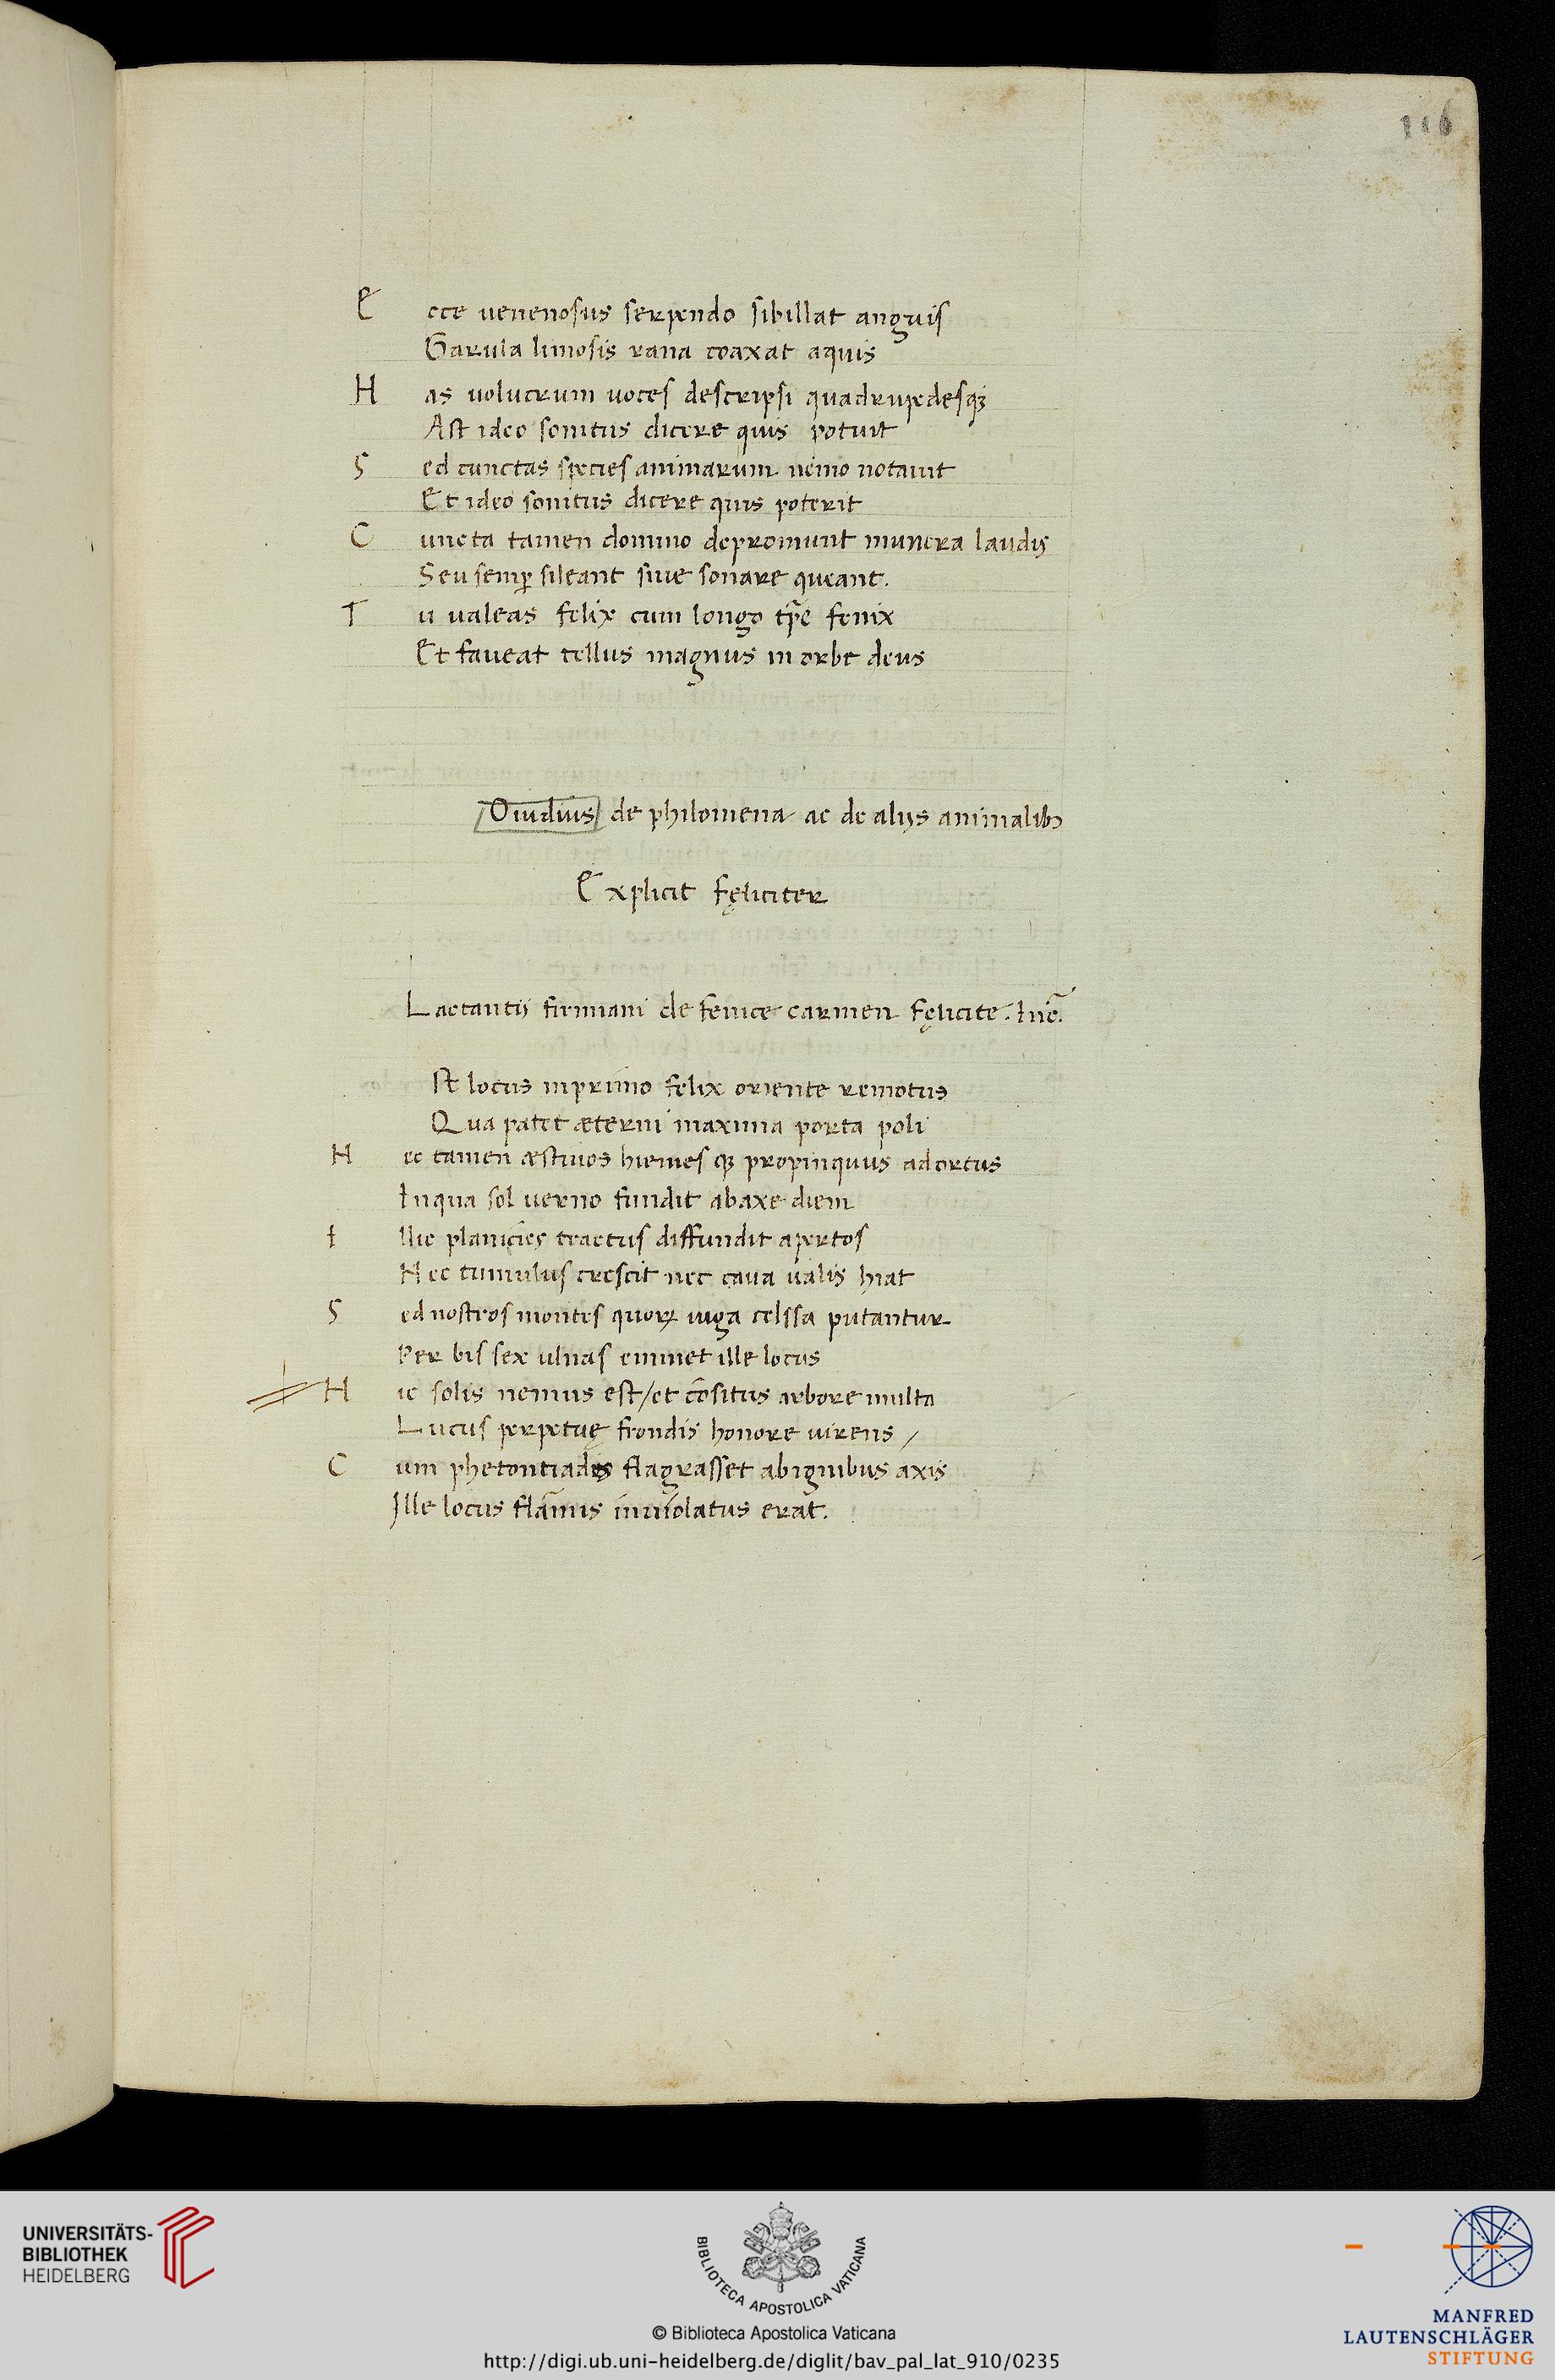 116
E cce uenenosus serpendo sibillat anguis
Garula limosis rana coaxat aquis
H as uolucrum uoces descripsi quadrupedesqꝫ
Ast ideo sonitus dicere quis potuit
S ed cunctas species animarum nemo notauit
Et ideo sonitus dicere quis poterit
C uncta tamen domino depromunt munera laudis
Seu semꝑ sileant siue sonare queant.
T u ualeas felix cum longo tp̄e fenix
Et faueat tellus magnus in orbe deus
Ouidius de philomena ac de alijs animalibꝫ
Explicit fęliciter
Lactantij firmiani de fenice carmen fęlicite. Inc̄.
st locus inprimo felix oriente remotus
Qua patet æterni maxima porta poli
N ec tamen æstiuos hiemesqꝫ propinquus adortus
Inqua sol uerno fundit abaxe diem
I llic planicies tractus diffundit apertos
Nec tumulus crescit nec caua ualis hiat
S ed nostros montes quoꝝ iuga celssa putantur
Per bis sex ulnas eminet ille locus
H ic solis nemus est/et cōsitus arbore multa
Lucus perpetuę frondis honore uirens /
C um phetontiades flagrasset abignibus axis
Ille locus flāmis inuiolatus erat.
UNIVERSITÄTS-
BIBLIOTHEK
HEIDELBERG
BIBLIOTECA APOSTOLICA VATICANA
© Biblioteca Apostolica Vaticana
http://digi.ub.uni-heidelberg.de/diglit/bav_pal_lat_910/0235
MANFRED
LAUTENSCHLÄGER
STIFTUNG